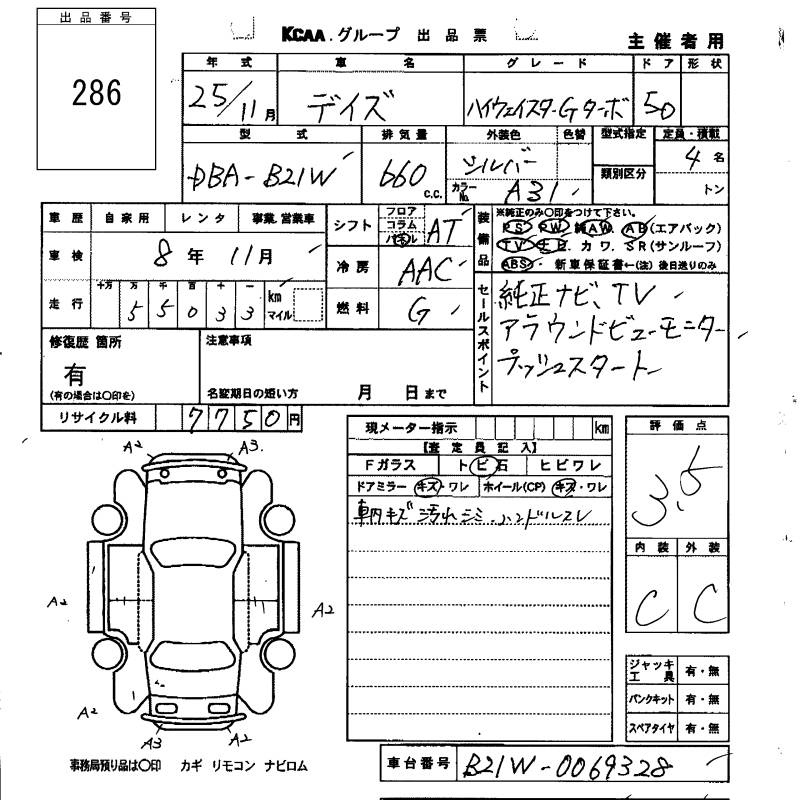 出品番号
286
KCAA.グループ 出品票
主催者用
年式 車名 グレード ドア 形状
25/11月 デイズ ハイウェイスターGターボ 5D
型式 排気量 外装色 色替 型式指定 定員・積載
DBA-B21W 660 c.c. シルバー 類別区分 4名
カラーNo. A31 トン
車歴 自家用 レンタ 事業.営業車 シフト フロア コラム パネル AT
装備品 ※純正のみ〇印をつけて下さい。
PS PW 純AW. AB(エアバック)
TV ナビ. カワ. SR(サンルーフ)
ABS 新車保証書←(注)後日送りのみ
車検 8年 11月 冷房 AAC
走行 十万 万 千 百 十 一 km マイル 燃料 G
5 5 0 3 3
セールスポイント 純正ナビ、TV
アラウンドビューモニター
プッシュスタート
修復歴 箇所 注意事項
有
(有の場合は〇印を) 名変期日の短い方 月 日まで
リサイクル料 7750円
現メーター指示 km
評価点
3.5
【査定員記入】
Fガラス トビ石 ヒビワレ
ドアミラー キズ・ワレ ホイール(CP) キズ・ワレ
車内キズ 汚れシミ ハンドルスレ
内装 外装
C C
A2 A3.
A2 A2
A2
A3 A2
ジャッキ工具 有・無
パンクキット 有・無
スペアタイヤ 有・無
事務局預り品は〇印 カギ リモコン ナビロム
車台番号 B21W-0069328